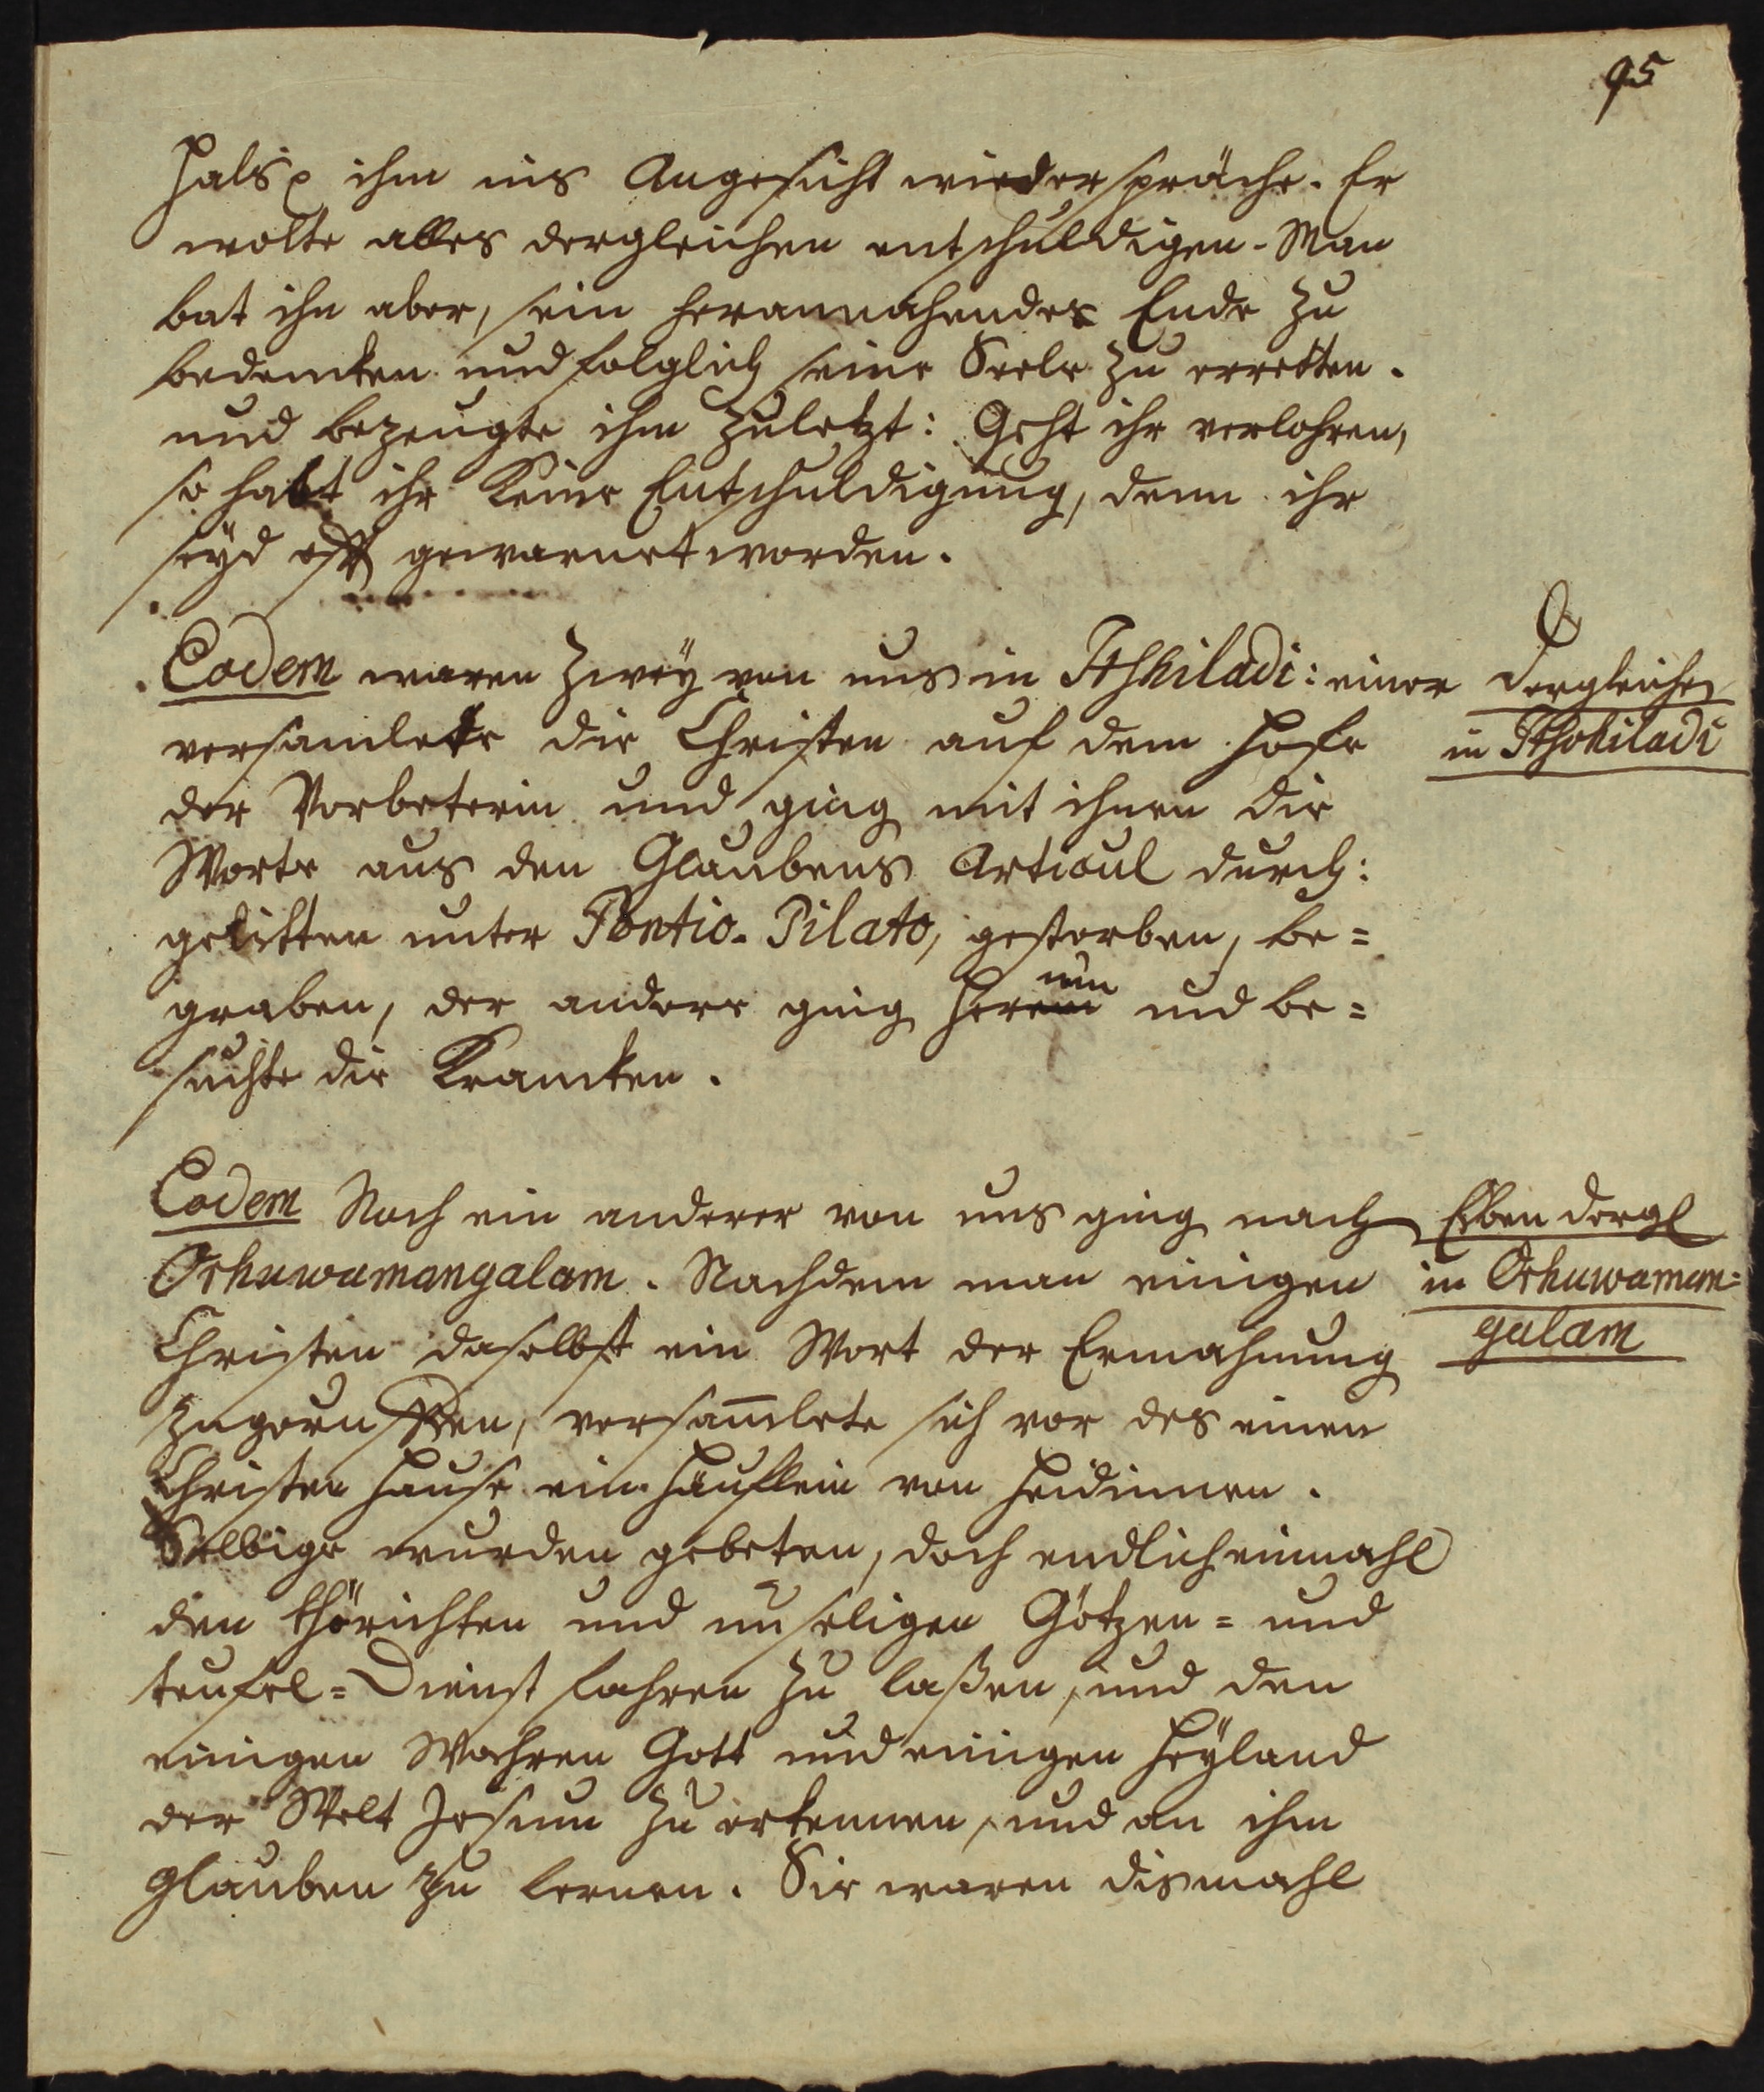 95
Hals p ihm ins Angesicht wiederspräche. Er
wolte alles dergleichen entschuldigen. Man
bat ihn aber, sein herannahendes Ende zu
bedencken und folglich seine Seele zu erretten.
und bezeugte ihm zuletzt: Geht ihr verlohren,
so habt ihr keine Entschuldigung, denn ihr
seyd offt gewarnet worden.
Eodem waren zwey von uns in Itshiladi: einer
versamlete die Christen auf dem Hofe
der Vorbeterin und ging mit ihnen die
Worte aus den Glaubens Articul durch:
gelitten unter Pontio Pilato, gestorben, be=
graben, der andere ging herum und be=
suchte die Krancken.
Dergleichen
in Itshiladi
Eodem Noch ein anderer von uns ging nach
Orhuwamangalam. Nachdem man einigen
Christen daselbst ein Wort der Ermahnung
zugeruffen, versam̅lete sich vor des einen
Christen Hause ein Häuflein von Heidinnen.
Selbige wurden gebeten, doch endlich einmahl
den thörichten und unseligen Götzen= und
teufel=Dienst fahren zu laßen, und den
einigen Wahren Gott und einigen Heyland
der Welt Jesum zu erkennen, und an ihm
glauben zu lernen. Sie waren dismahl
Eben dergl
in Orhuwaman=
galam